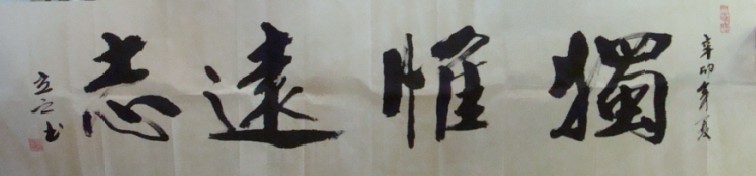 辛卯年夏
獨惟遠志
立之书